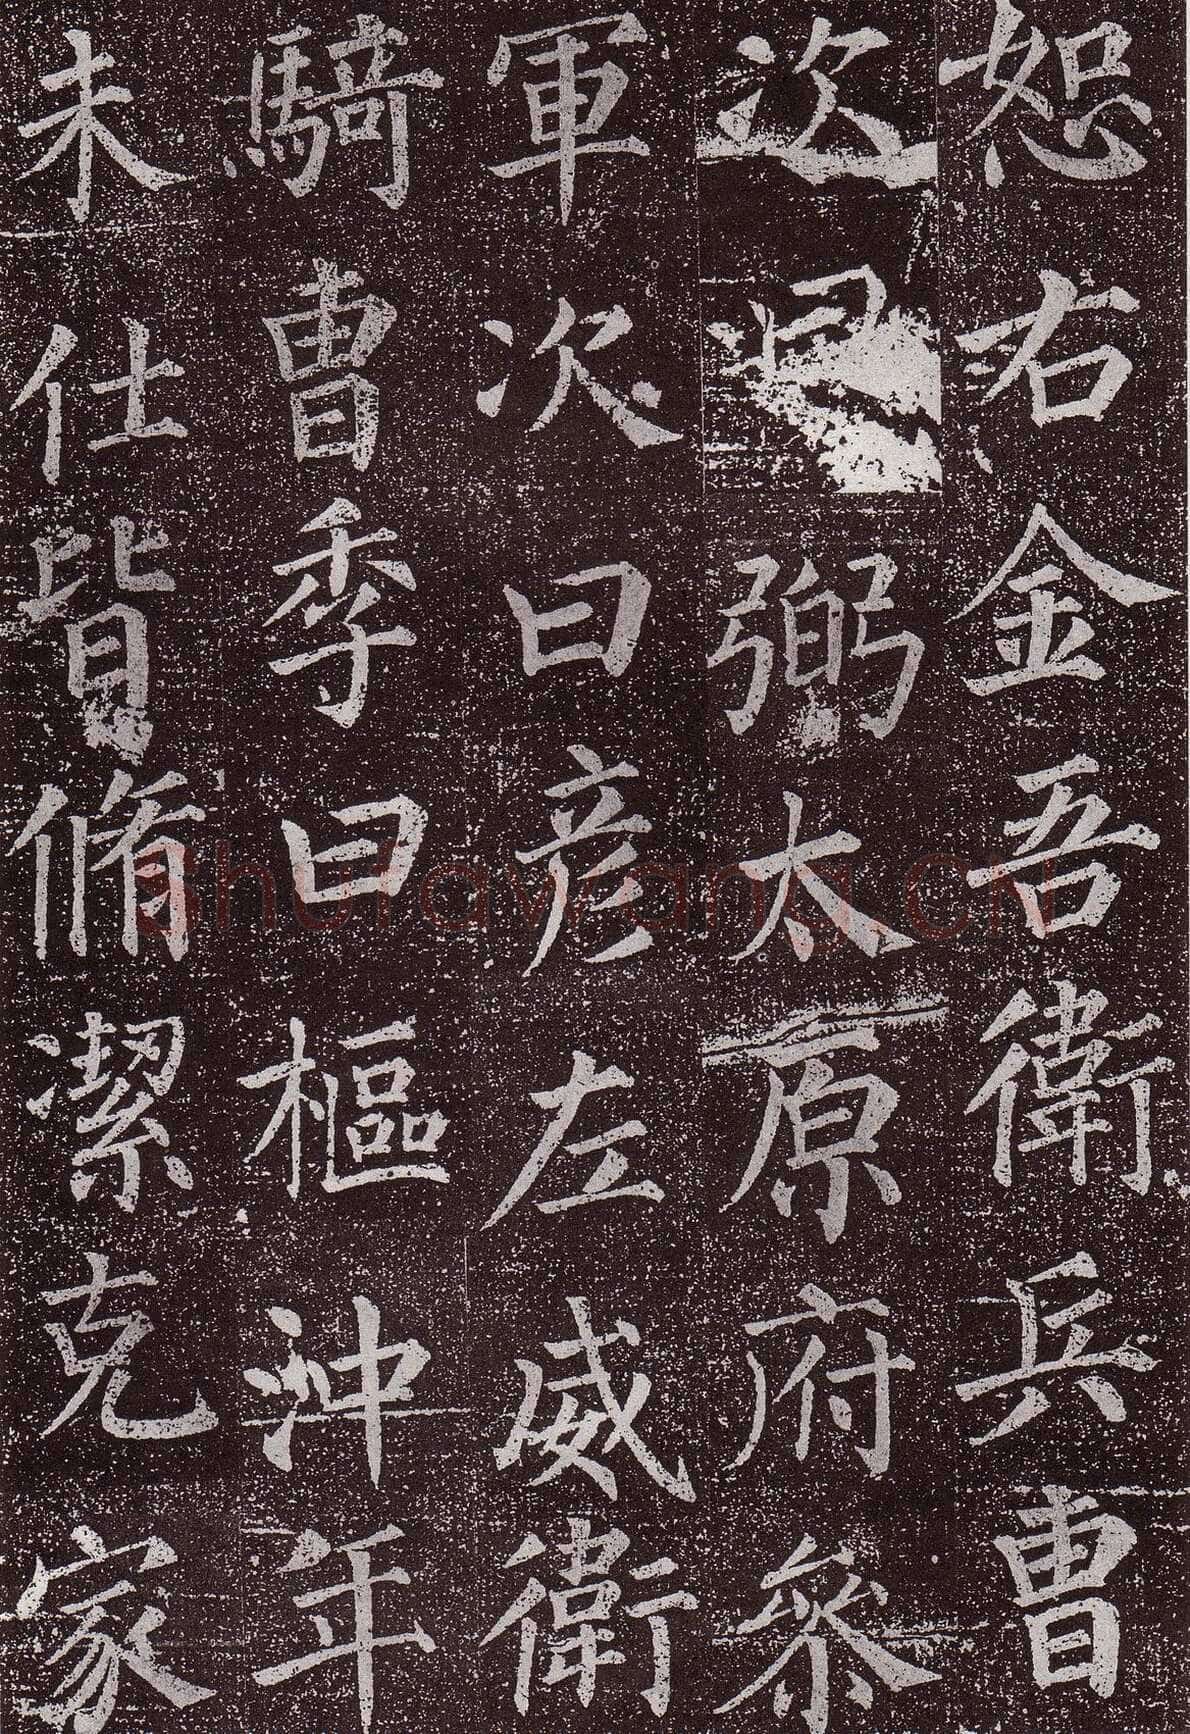 恕右金吾衛兵曹
次曰弼太原府參
軍次曰彦左威衛
騎曹季曰樞沖年
未仕皆脩潔克家
Shufawang.CN